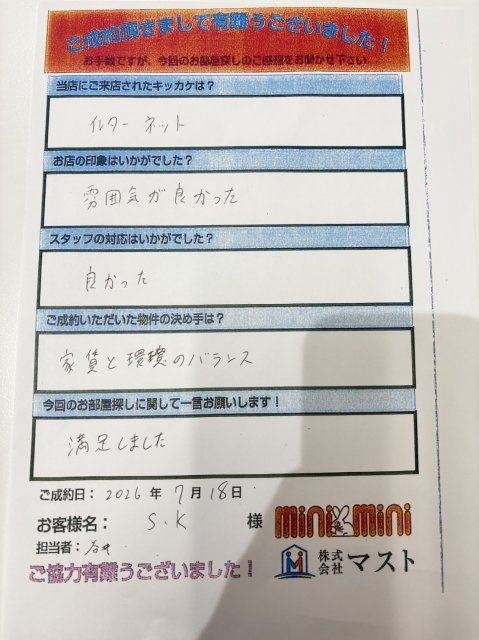 ご成約頂きまして有難うございました！
お手数ですが、今回のお部屋探しのご感想をお聞かせ下さい。
当店にご来店されたキッカケは？
インターネット
お店の印象はいかがでした？
雰囲気が良かった
スタッフの対応はいかがでした？
良かった
ご成約いただいた物件の決め手は？
家賃と環境のバランス
今回のお部屋探しに関して一言お願いします！
満足しました
ご成約日：2026年7月18日
お客様名：S.K様
担当者：
ご協力有難うございました！
mini mini
株式会社マスト